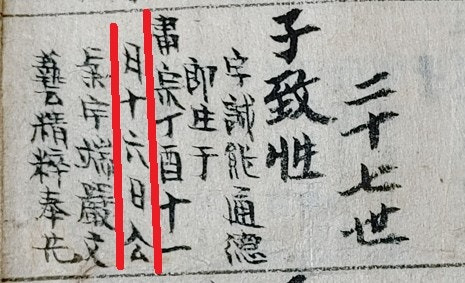 二十七世
子致性
字誠能通德
郎生于
肅宗丁酉十一
月十六日公
氣宇端嚴文
藝精粹奉先